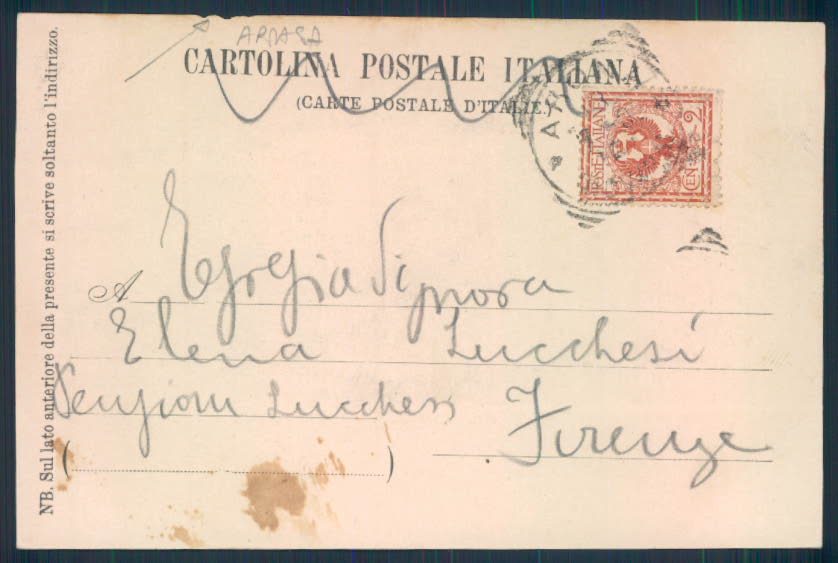 CARTOLINA POSTALE ITALIANA
(CARTE POSTALE D'ITALIE)
POSTE ITALIANE
CEN. 2
A Egregia Signora
Elena Lucchesi
Pensione Lucchesi
Firenze
NB. Sul lato anteriore della presente si scrive soltanto l'indirizzo.